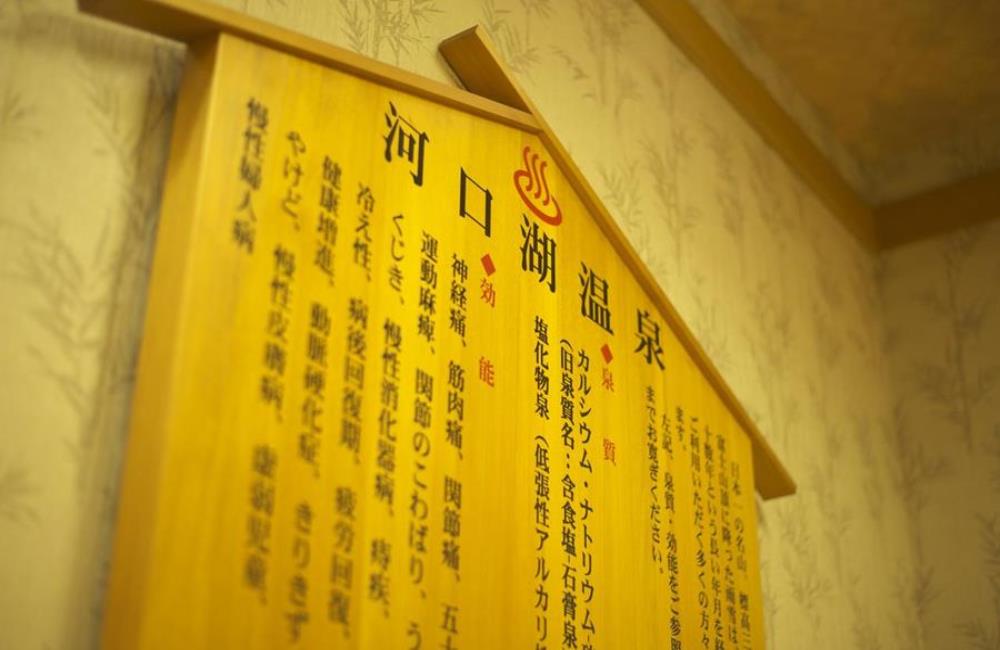 河口湖温泉
日本一の名山、標高三
富士山頂に降った雨雪は、
十数年という長い年月を経
ご利用いただく多くの方々
ます。
左記、泉質・効能をご参照
までお寛ぎください。
◆泉質
カルシウム・ナトリウム-
(旧泉質名:含食塩-石膏泉
塩化物泉 (低張性アルカリ
◆効能
神経痛、筋肉痛、関節痛、五十
運動麻痺、関節のこわばり、う
くじき、慢性消化器病、痔疾、
冷え性、病後回復期、疲労回復、
健康増進、動脈硬化症、きりきず
やけど、慢性皮膚病、虚弱児童、
慢性婦人病